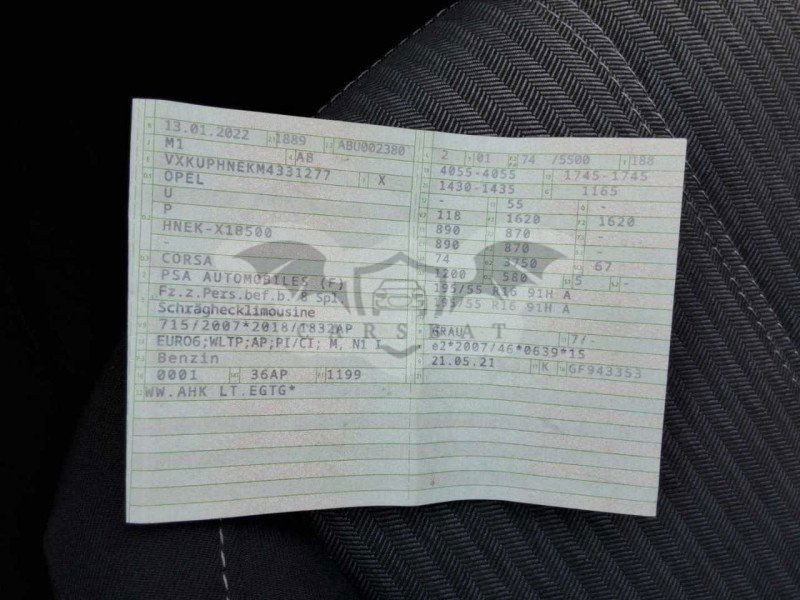 13.01.2022 1889 ABU002380
M1 AB
VXKUPHNEKM4331277 X
OPEL
U
P
HNEK-X1B500
-
CORSA
PSA AUTOMOBILES (F)
Fz.z.Pers.bef.b. 8 Spl
Schräghecklimousine
715/2007*2018/1832AP
EURO6;WLTP;AP;PI/CI; M, N1 I
Benzin
0001 36AP 1199
WW.AHK LT.EGTG*
2 01 74 /5500 188
4055-4055 1745-1745
1430-1435 1165
- 55 -
118 1620 1620
890 870 -
890 870 -
74 3750 67
1200 580 5 -
195/55 R16 91H A
195/55 R16 91H A
-
GRAU 7/-
e2*2007/46*0639*15
21.05.21 K GF943353
CARSEAT